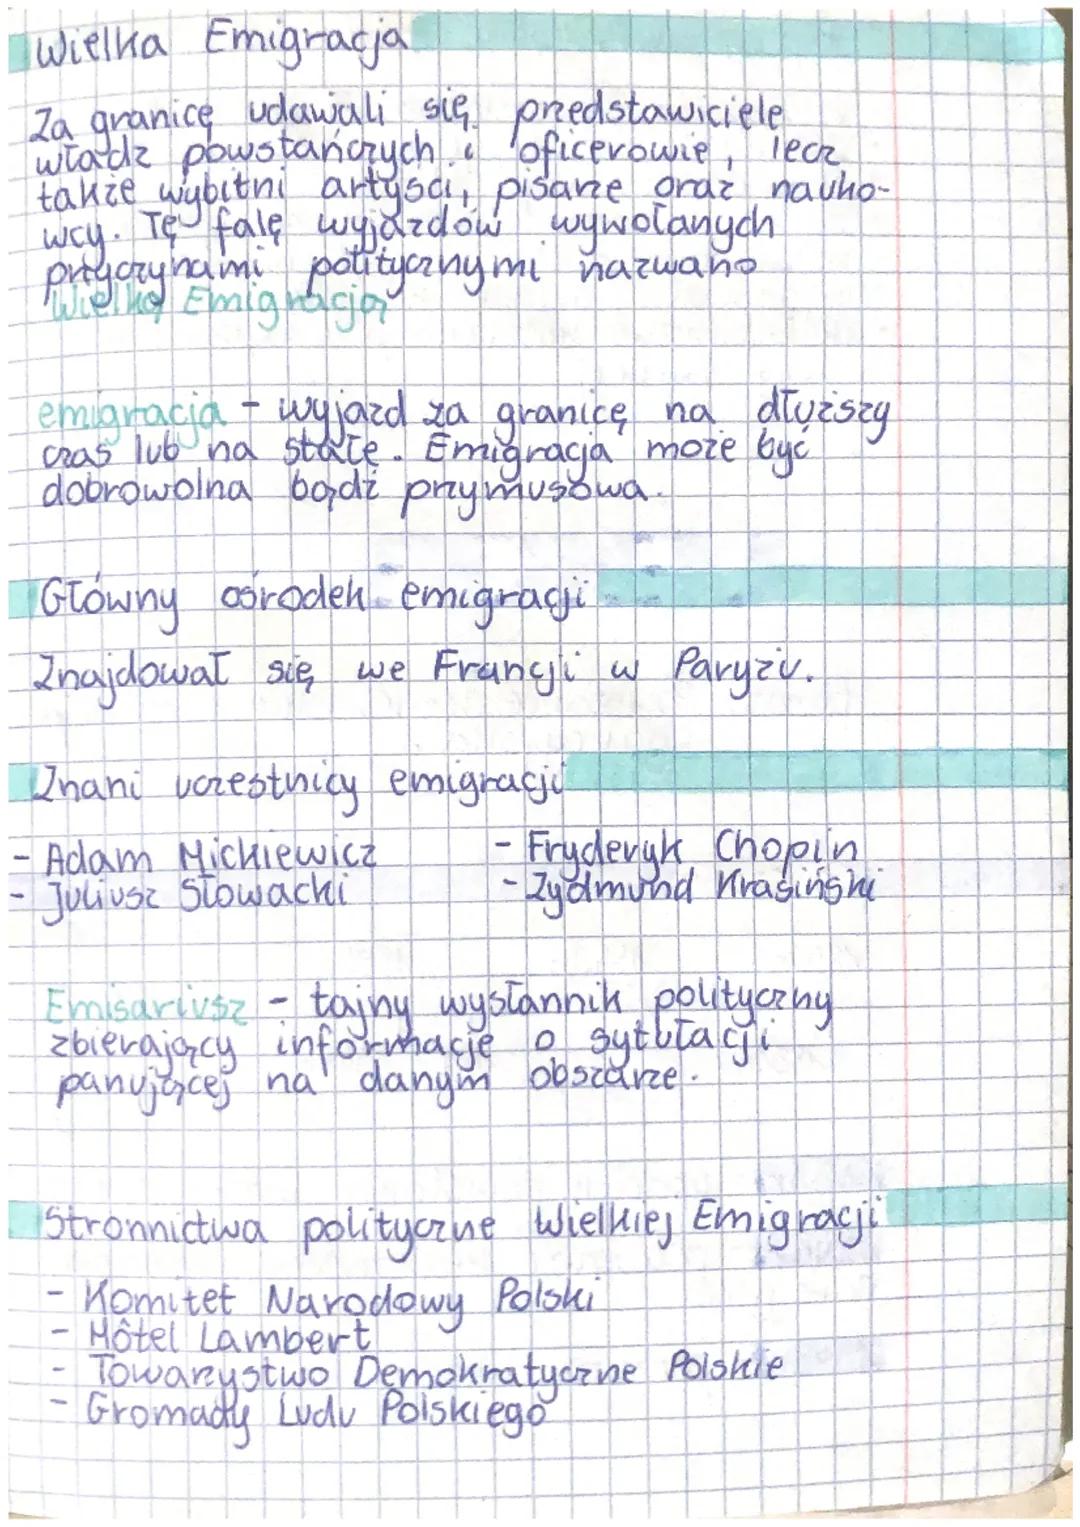 Wielka Emigracja
Za granicę udawali się przedstawiciele
władz powstańczych i oficerowie, lecz
także wybitni artyści, pisarze oraz nauko-
wcy. Tę falę wyjazdów wywołanych
przyczynami politycznymi nazwano
Wielką Emigracją
emigracja - wyjazd za granicę na dłuższy
czas lub na stałe. Emigracja może być
dobrowolna bądź przymusowa.
Główny ośrodek emigracji
Znajdował się we Francji w Paryżu.
Znani uczestnicy emigracji
- Adam Mickiewicz
- Juliusz Słowacki
- Fryderyk Chopin
- Zydmund Krasiński
Emisariusz - tajny wysłannik polityczny
zbierający informacje o sytułacji
panującej na danym obszarze.
Stronnictwa polityczne Wielkiej Emigracji
- Komitet Narodowy Polski
- Hôtel Lambert
- Towarzystwo Demokratyczne Polskie
- Gromady Ludu Polskiego